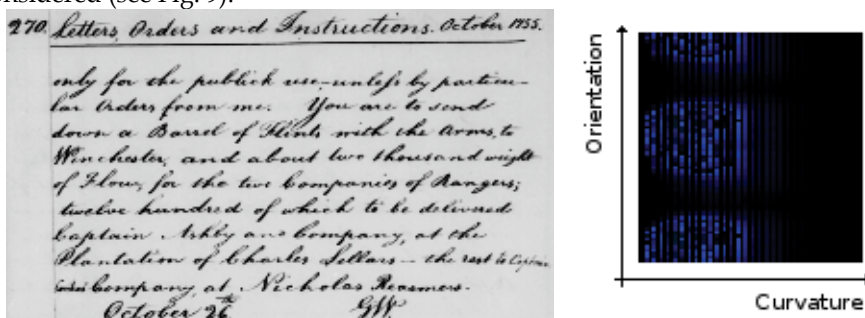 onsidered (see Fig. 9).
270. Letters, Orders and Instructions. October 1755.
only for the publick use—unless by particu-
lar Orders from me. You are to send
down a Barrel of Flints with the Arms, to
Winchester, and about two thousand weight
of Flour, for the two Companies of Rangers;
twelve hundred of which to be delivered
Captain Ashby and Company, at the
Plantation of Charles Sellars — the rest to Captain
Company, at Nicholas Reasmers.
October 26th GW.
Orientation
Curvature